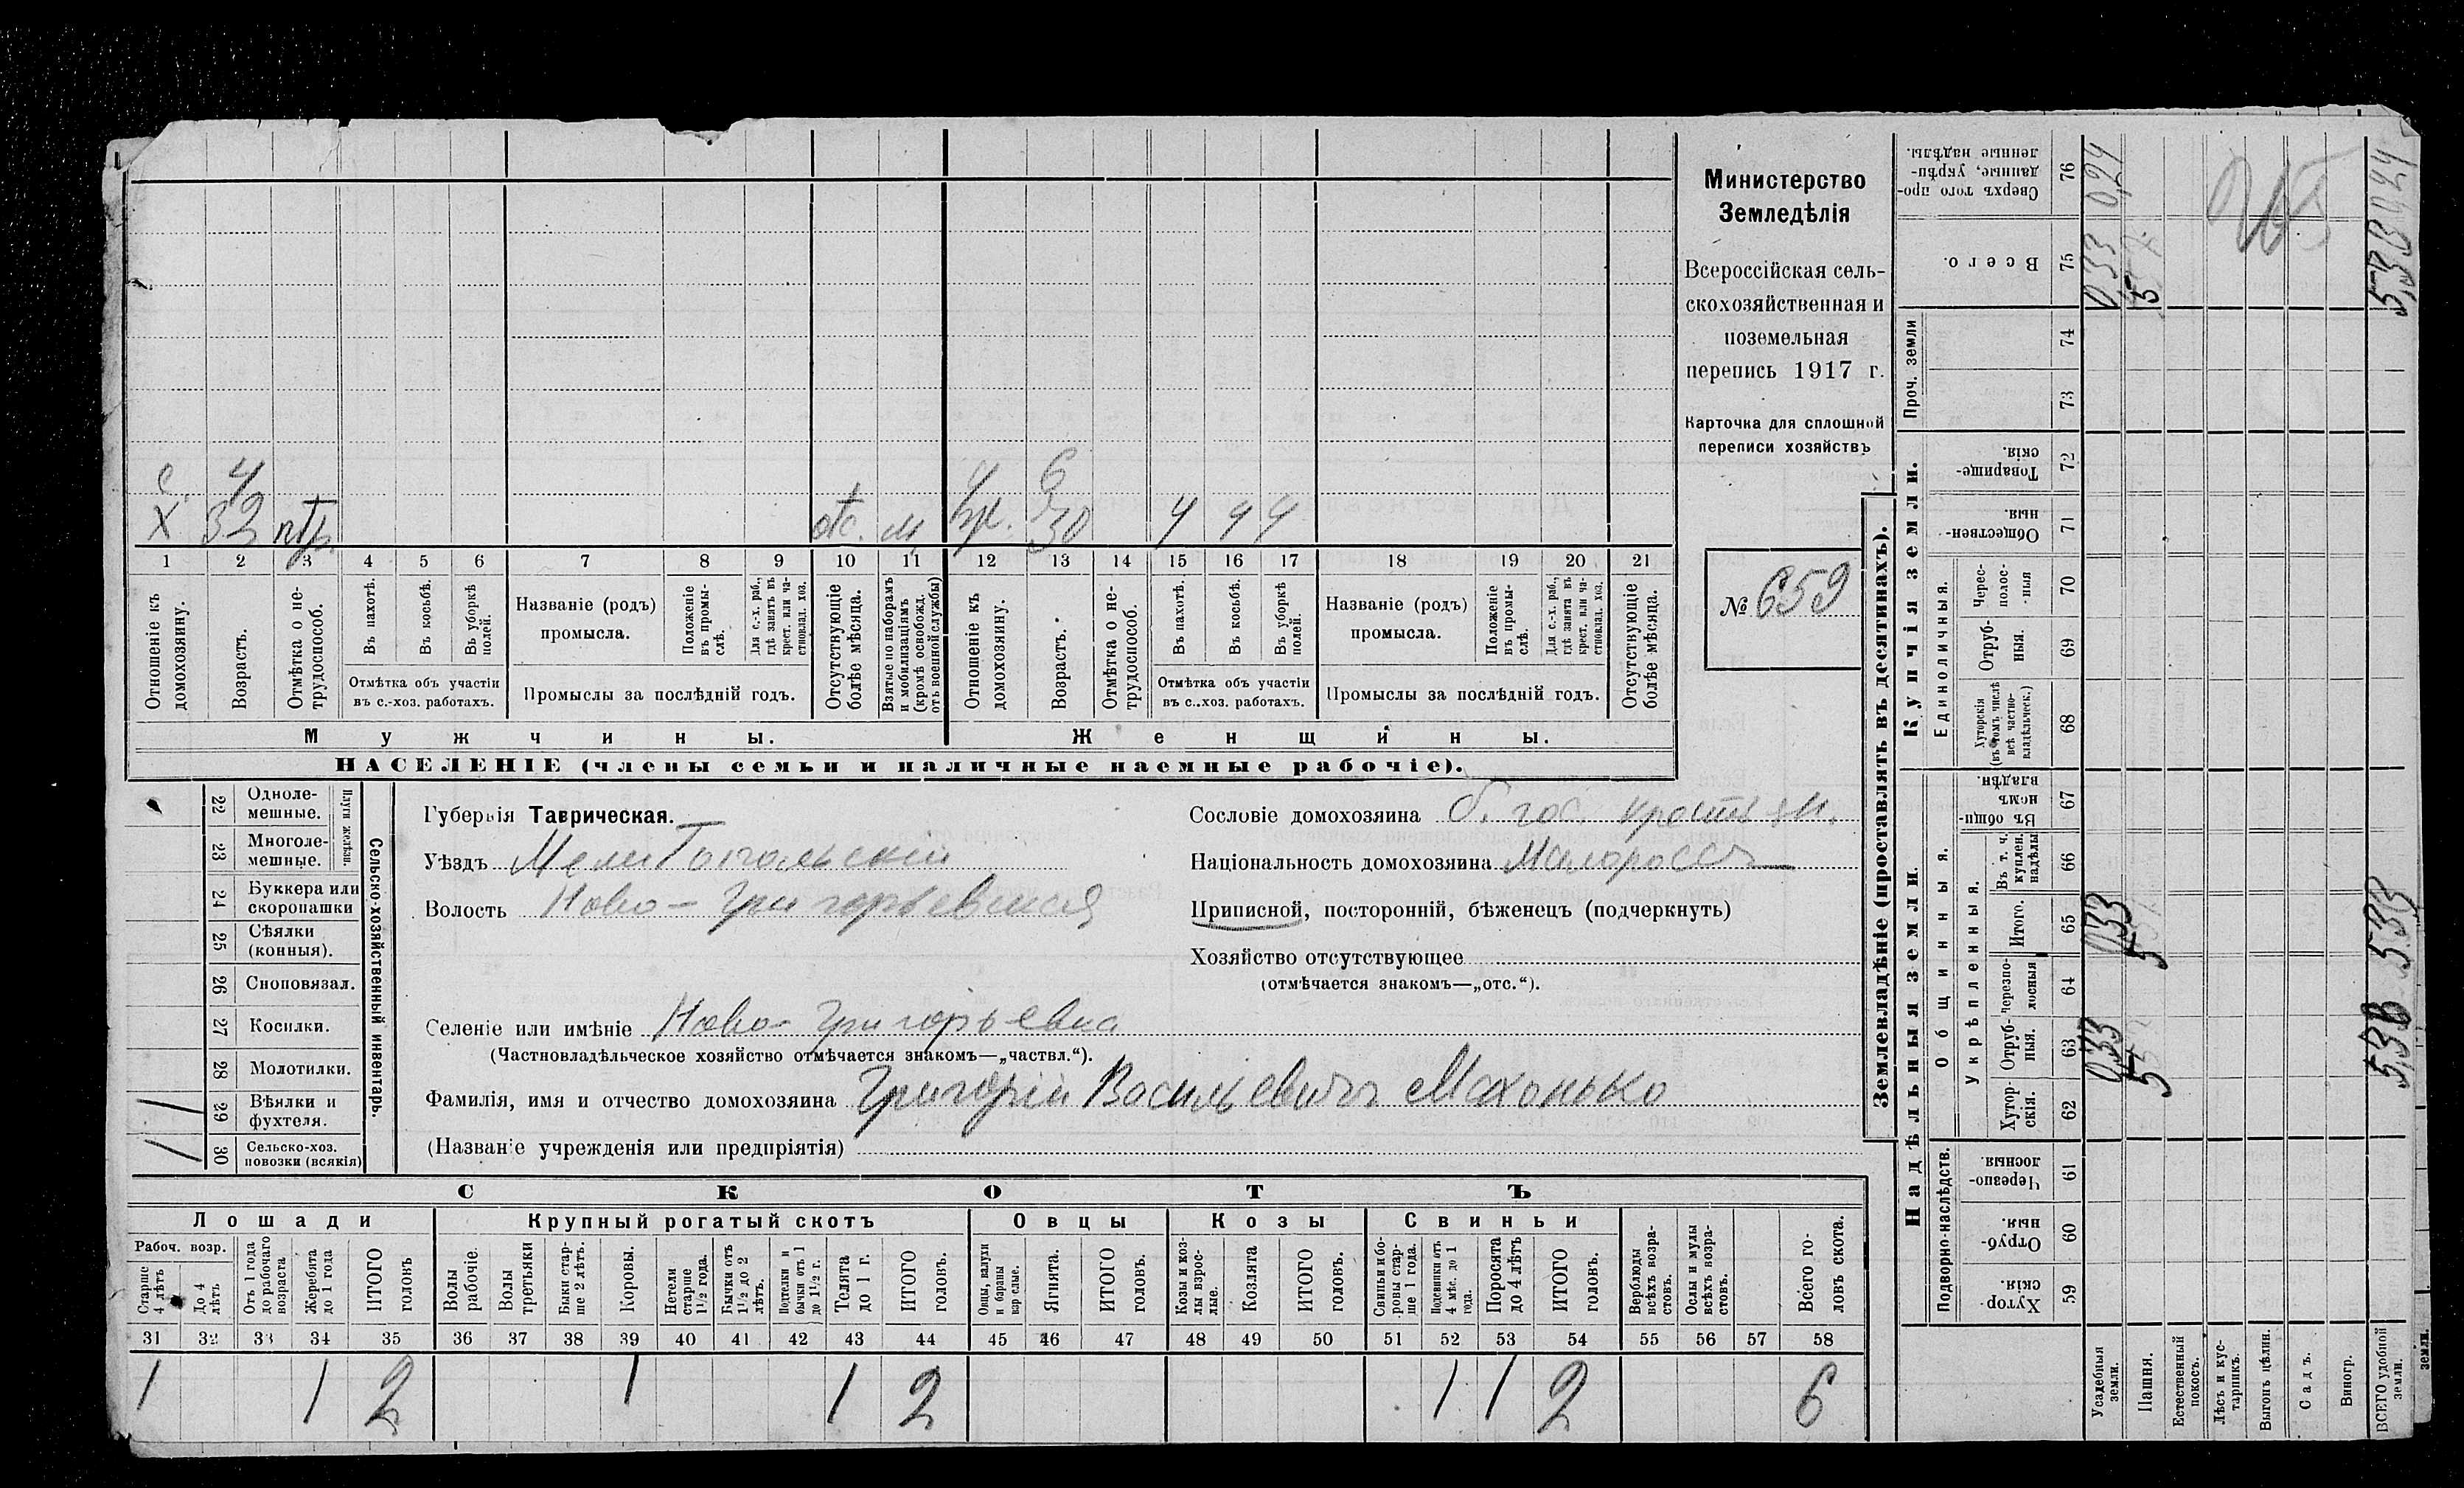 с. 4 ч 6
Х 32 отс. м. 30 ч ч ч
1 2 3 4 5 6 7 8 9 10 11 12 13 14 15 16 17 18 19 20 21
Отношеніе къ домохозяину.
Возрастъ.
Отмѣтка о не-трудоспособ.
Въ пахотѣ.
Въ косьбѣ.
Въ уборкѣ полей.
Отмѣтка объ участіи
въ с.-хоз. работахъ.
Названіе (родъ)
промысла.
Положеніе въ промы-слѣ.
Для с.-х. раб., гдѣ занятъ въ крест. или ча-стновлад. хоз.
Промыслы за послѣдній годъ.
Отсутствующіе болѣе мѣсяца.
Взятые по наборамъ и мобилизаціямъ (кромѣ освобожд. отъ военной службы)
Отношеніе къ домохозяину.
Возрастъ.
Отмѣтка о не-трудоспособ.
Въ пахотѣ.
Въ косьбѣ.
Въ уборкѣ полей.
Отмѣтка объ участіи
въ с.-хоз. работахъ.
Названіе (родъ)
промысла.
Положеніе въ промы-слѣ.
Для с.-х. раб., гдѣ занята въ крест. или ча-стновлад. хоз.
Промыслы за послѣдній годъ.
Отсутствующіе болѣе мѣсяца.
Мужчины. Женщины.
НАСЕЛЕНІЕ (члены семьи и наличные наемные рабочіе).
Министерство
Земледѣлія
Всероссійская сель-
скохозяйственная и
поземельная
перепись 1917 г.
Карточка для сплошной
переписи хозяйствъ
№ 659
22 Одноле-мешные.
23 Многоле-мешные.
Плуги желѣзн.
24 Буккера или скоропашки
25 Сѣялки (конныя).
26 Сноповязал.
27 Косилки.
28 Молотилки.
29 Вѣялки и фухтеля. 1
30 Сельско-хоз. повозки (всякія) 1
Сельско-хозяйственный инвентарь.
Губернія Таврическая.
Уѣздъ Мелитопольскій
Волость Ново-Григорьевская
Сословіе домохозяина б. гос. крестьян.
Національность домохозяина Малороссъ
Приписной, посторонній, бѣженецъ (подчеркнуть)
Хозяйство отсутствующее
(отмѣчается знакомъ—„отс.“).
Селеніе или имѣніе Ново-Григорьевка
(Частновладѣльческое хозяйство отмѣчается знакомъ—„частвл.“).
Фамилія, имя и отчество домохозяина Григорій Васильевичъ Махонько
(Названіе учрежденія или предпріятія)
СКОТЪ
Лошади Крупный рогатый скотъ Овцы Козы Свиньи
Рабоч. возр.
Старше 4 лѣтъ
До 4 лѣтъ
Отъ 1 года до рабочаго возраста
Жеребята до 1 года
ИТОГО головъ
Волы рабочіе.
Волы третьяки
Быки стар-ше 2 лѣтъ.
Коровы.
Нетели старше 1 1/2 года.
Бычки отъ 1 1/2 до 2 лѣтъ.
Подтелки и бычки отъ 1 до 1 1/2 г.
Телята до 1 г.
ИТОГО головъ.
Овцы, валухи и бараны взрослые.
Ягнята.
ИТОГО головъ.
Козы и коз-лы взрос-лые.
Козлята
ИТОГО головъ.
Свиньи и бо-ровы стар-ше 1 года.
Подсвинки отъ 4 мѣс. до 1 года.
Поросята до 4 лѣтъ
ИТОГО головъ.
Верблюды всѣхъ возра-стовъ.
Ослы и мулы всѣхъ возра-стовъ.
Всего го-ловъ скота.
31 32 33 34 35 36 37 38 39 40 41 42 43 44 45 46 47 48 49 50 51 52 53 54 55 56 57 58
1 1 2 1 1 2 1 1 2 6
Землевладѣніе (проставлять въ десятинахъ).
Надѣльныя земли.
Купчія земли.
Проч. земли
Подворно-наслѣдств.
Общинныя.
Укрѣпленныя.
Единоличныя.
Хутор-скія. 59
Отруб-ныя. 60
Черезпо-лосныя. 61
Хутор-скія. 62
Отруб-ныя. 63
черезпо-лосныя 64
Итого. 65
Въ т. ч. куплен. надѣлы 66
Въ общин-номъ владѣн. 67
Хуторскія (въ томъ числѣ всѣ частно-владѣльческ.) 68
Отруб-ныя. 69
Черес-полос-ныя 70
Обществен-ныя. 71
Товарище-скія. 72
73
74
Всего. 75
Сверхъ того про-данные, укрѣп-ленные надѣлы. 76
Усадебныя земли. 033 033 033 0,24
Пашня. 5 5 5
Естественный покосъ.
Лѣсъ и кус-тарникъ.
Выгонъ цѣлин.
Садъ.
Виногр.
ВСЕГО удобной земли. 5,33 5,33 5,33 0,24
земли.